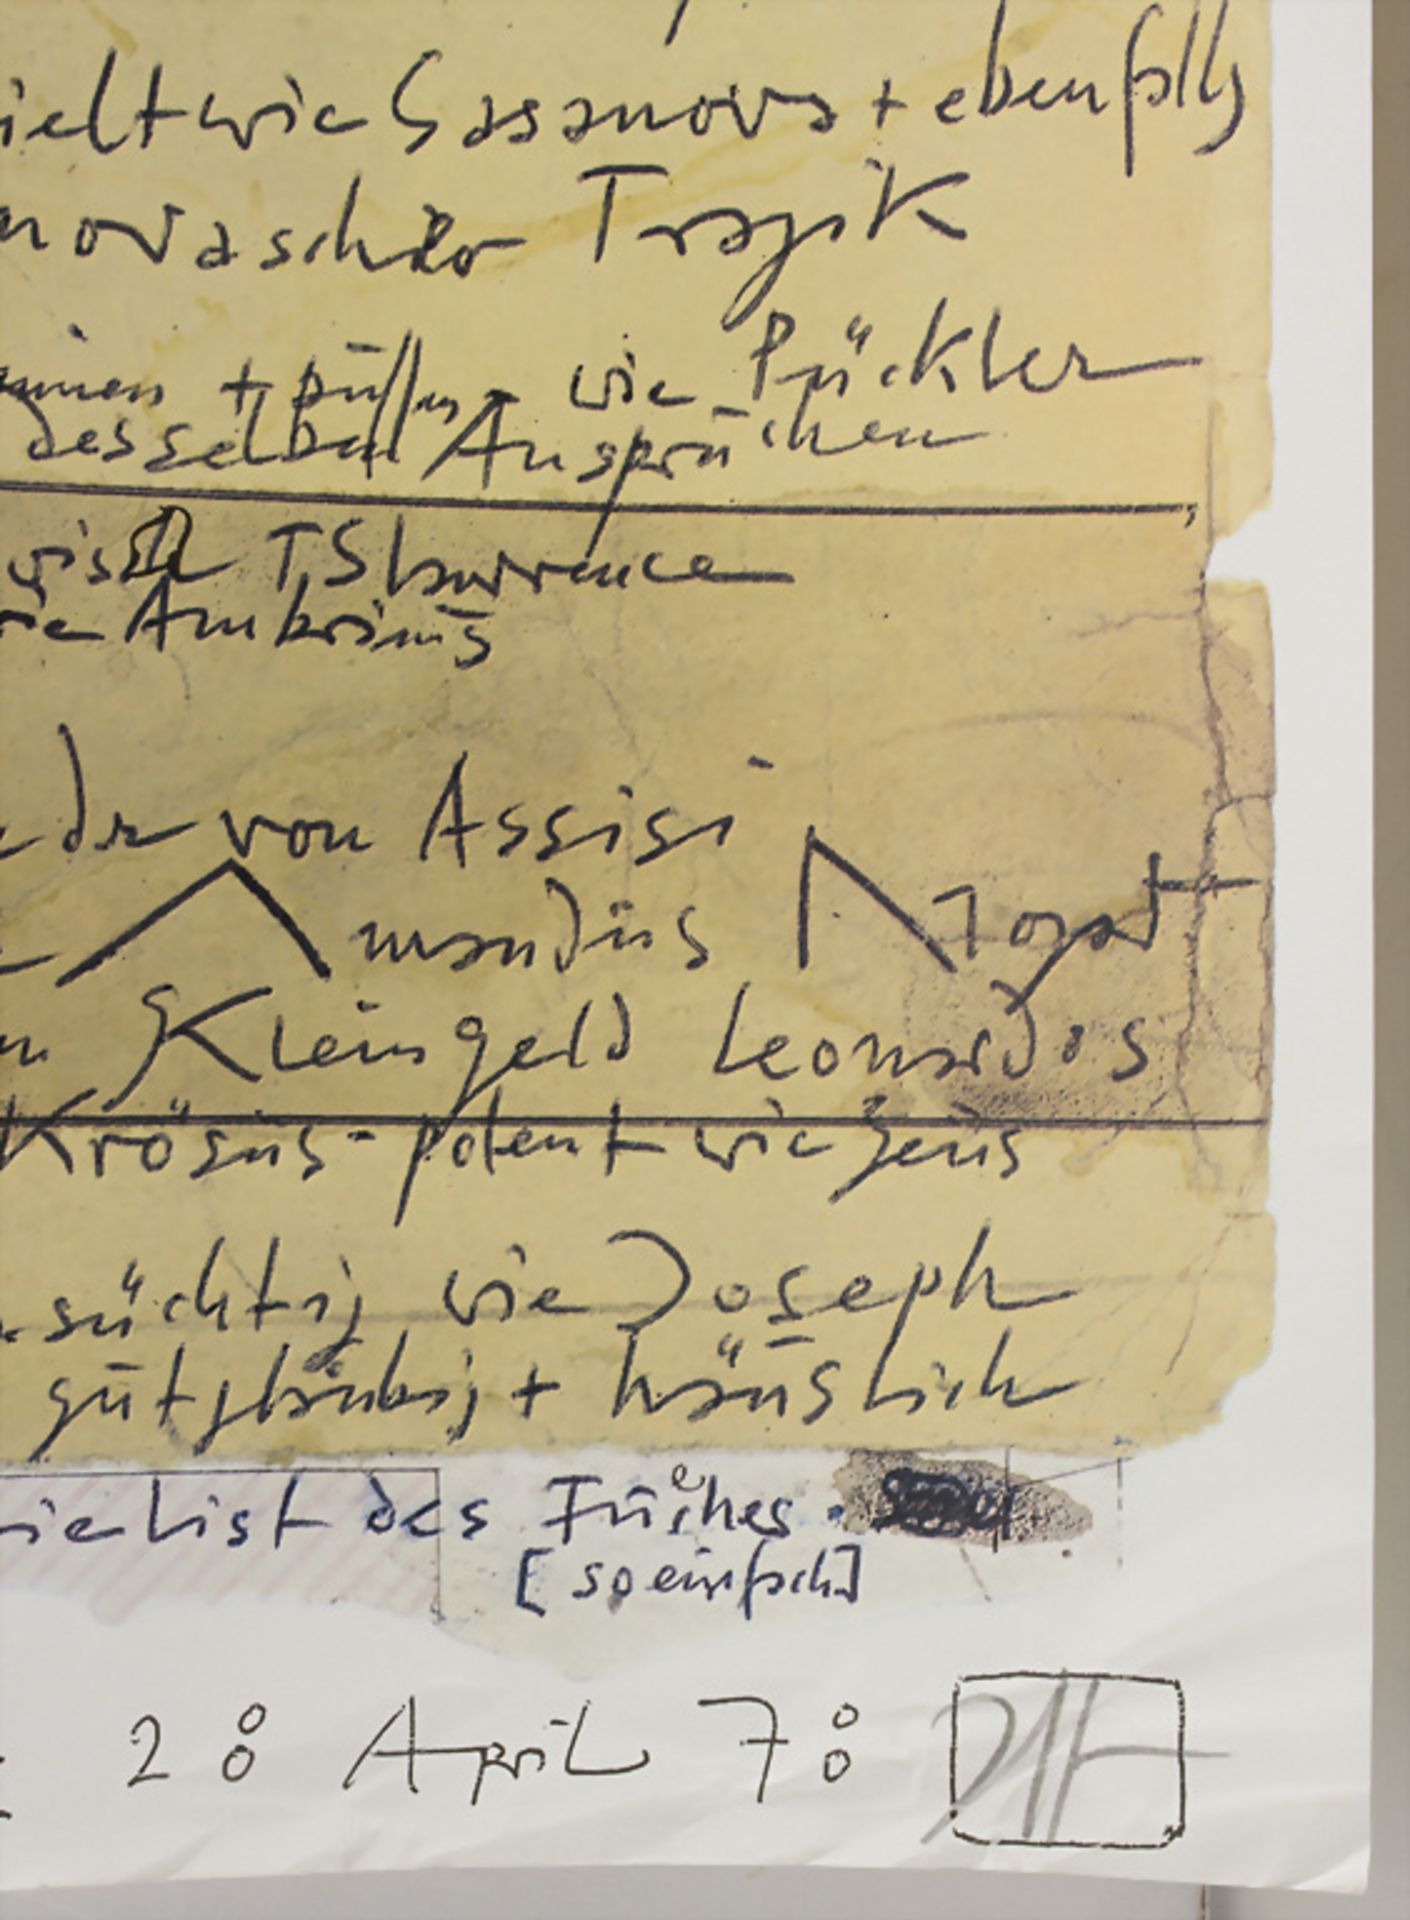 ielt wie Casanova + ebenfalls
novascher Tragik
+ wie Pückler
desselben Ansprüchen
T.S Lawrence
Ambrims
von Assisi
Amandus Agatt
Kleingeld Leonardos
Krösus - potent wie Zeus
süchtig wie Joseph
gutgläubig + häuslich
ielist des Fuches.
[so einfach]
28 April 78